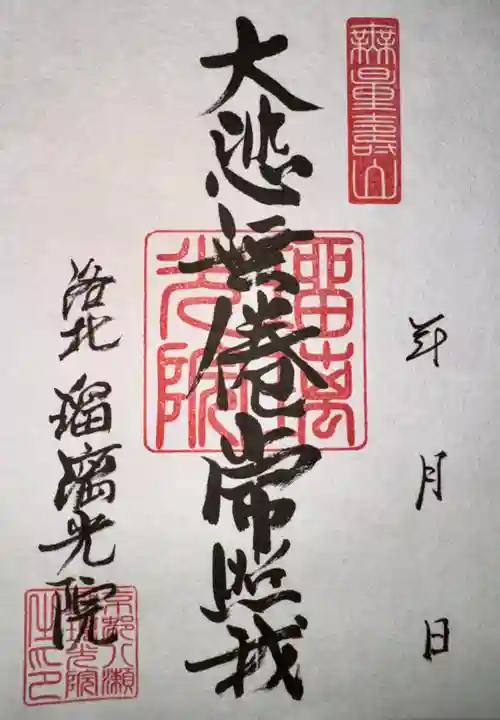 無量壽山
年 月 日
大悲無倦常照我
瑠璃光院
洛北 瑠璃光院
京都八瀬
瑠璃光院